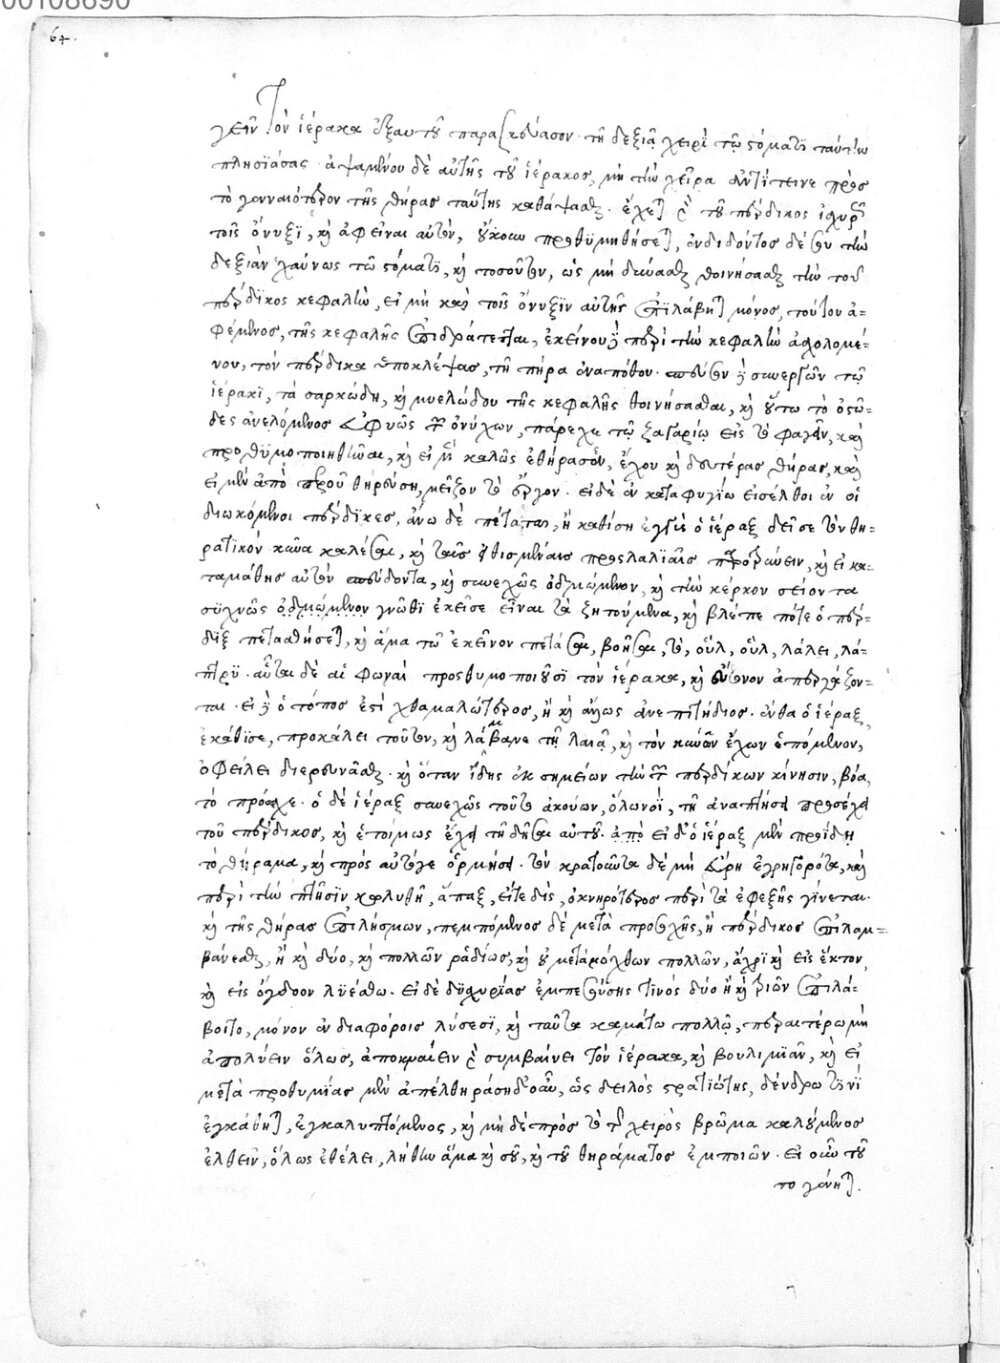 00108690
64.
γεῖν τὸν ἱέρακα ἐξ αυτοῦ παρασκεύασον· τῇ δεξιᾷ χειρὶ τῷ στόματι ταύτην
πλησϊάσας· ἁψαμένου δὲ αὐτῆς τοῦ ἱέρακος, μὴ τὴν χεῖρα ἀντίτεινε πρὸς
τὸ γενναιότερον τῆς θήρας ταύτης καθάψασθαι· ἔχεται γὰρ τοῦ πέρδικος ἰσχυρῶς
τοῖς ὄνυξι, καὶ ἀφεῖναι αὐτὸν, οὔκουν προθυμηθήσεται, ἐνδιδόντος δέ σου τὴν
δεξιὰν χαύνως τῷ στόματι, καὶ τοσοῦτον, ὡς μὴ δύνασθαι θοινήσασθαι τὴν τοῦ
πέρδϊκος κεφαλὴν, εἰ μὴ καὶ τοῖς ὄνυξϊν αὐτῆς ἐπιλάβηται μόνος, τούτου ἀ-
φέμενος, τῆς κεφαλῆς ἐπιδράττεται, ἐκείνου περὶ τὴν κεφαλὴν ἀσχολομέ-
νου, τὸν πέρδικα ὑποκλέψας, τῇ πήρᾳ ἐναπόθου· σπεύσον συνεργῶν τῷ
ἱέρακϊ, τὰ σαρκώδη, καὶ μυελώδου τῆς κεφαλῆς θοινήσασθαι, καὶ οὕτω τὸ ὀστῶ-
δες ἀνελόμενος εὐφυῶς τῶν ὀνύχων, πάρεχε τῷ ζαγαρίῳ εἰς τὸ φαγεῖν, καὶ
προθϋμοποιηθῆναι, καὶ εἰ καλῶς ἐθήρασεν, ἔχου καὶ δευτέρας θήρας, καὶ
εἰ μὲν ἀπὸ πτεροῦ θηρεύσῃ, μεῖζον τὸ ἔργον· εἰ δὲ ἐν καταφυγίῳ εἰσέλθοι ἐν οἱ
διωκόμενοι πέρδϊκες, ἄνω δὲ πέταται, ἢ καθίσῃ ἐγγὺς ὁ ἱέραξ δεῖσε τὸν θη-
ρατϊκὸν κύνα καλέσαι, καὶ ταῖς ἐθισμέναις προσλαλϊαῖς προτρέπειν, καὶ εἰ κα-
ταμάθῃς αὐτὸν σπεύδοντα, καὶ συνεχῶς ὀσμώμενον, καὶ τὴν κέρκον σείοντα
συχνῶς ὀσμώμενον γνῶθϊ ἐκεῖσε εἶναι τὰ ζητούμενα, καὶ βλέπε πότε ὁ πέρ-
διξ πετασθήσεται, καὶ ἅμα τῷ ἐκεῖνον πετάσαι, βοῆσαι, τὸ, οὗλ, οὗλ, λάλει, λά-
πρϋ· αὗται δὲ αἱ φωναὶ προσθυμοποιοῦσϊ τὸν ἱέρακα, καὶ εὔτονον ἀπεργάζον-
ται· εἰ ὁ τόπος ἐστὶ χθαμαλώτερος, ἢ καὶ ἄλλως ἀνεπιτήδιος· ἔνθα ὁ ἱέραξ
ἐκάθϊσε, προκάλει τοῦτον, καὶ λάμβανε τῇ λαιᾷ, καὶ τὸν κύνα ἔχων ἑπόμενον,
ὀφείλει διερευνᾶσθαι· καὶ ὅταν ἴδῃς ἐκ σημείων τὴν τῶν περδίκων κίνησιν, βόα,
τὸ πρόσχε· ὁ δὲ ἱέραξ συνεχῶς τοῦτο ἀκούων, ὅλων, τῇ ἀναπτήσει προσέχει
τοῦ πέρδικος, καὶ ἑτοίμως ἔχει τῇ δήσει αὐτοῦ· ἀπὸ εἰ δ' ὁ ἱέραξ μὲν προΐδῃ
τὸ θήραμα, καὶ πρὸς αὐτόγε ὁρμήσει· τὸν κρατοῦντα δὲ μὴ εὕρῃ ἐγρηγορότα, καὶ
περὶ τὴν πτῆσϊν κωλυθῇ, ἅπαξ, εἴτε δὶς, ὀκνηρότερος περὶ τὰ ἐφεξῆς γίνεται·
καὶ τῆς θήρας ἐπιλήσμων, πεμπόμενος δὲ μετὰ προσοχῆς, ἢ πέρδικος ἐπιλαμ-
βάνεσθαι, ἢ καὶ δύο, καὶ πολλῶν ῥᾳδίως, καὶ οὐ μετὰ μόχθων πολλῶν, ἄχρϊ καὶ εἰς ἕκτον,
καὶ εἰς ὄγδοον λϋέσθω. εἰ δὲ δϋσχυρίας ἐμπεσούσης τινὸς δύο ἢ καὶ τριῶν ἐπιλά-
βοιτο, μόνον ἐν διαφόροις λύσεσϊ, καὶ ταῦτα καμάτῳ πολλῷ, περαιτέρω μὴ
ἀπολύειν ὅλως, ἀποκμαίειν γὰρ συμβαίνει τὸν ἱέρακα, καὶ βουλιμϊᾶν, καὶ εἰ
μετὰ προθυμίας μὲν ἀπέλθη, ὡς δειλὸς στρατϊώτης, δένδρῳ τϊνὶ
ἐγκάθηται, ἐγκαλυπτόμενος, καὶ μὴ δὲ πρὸς τὸ τῆς χειρὸς βρῶμα καλούμενος
ἐλθεῖν, ὅλως ἐθέλει, λήθην ἅμα καὶ σοῦ, καὶ τοῦ θηράματος ἐμποιῶν. εἰ οὖν τοῦ
το γένηται.